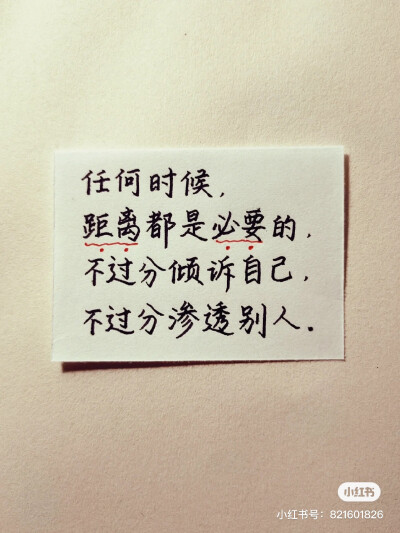 任何时候，
距离都是必要的，
不过分倾诉自己，
不过分渗透别人.
小红书
小红书号：821601826